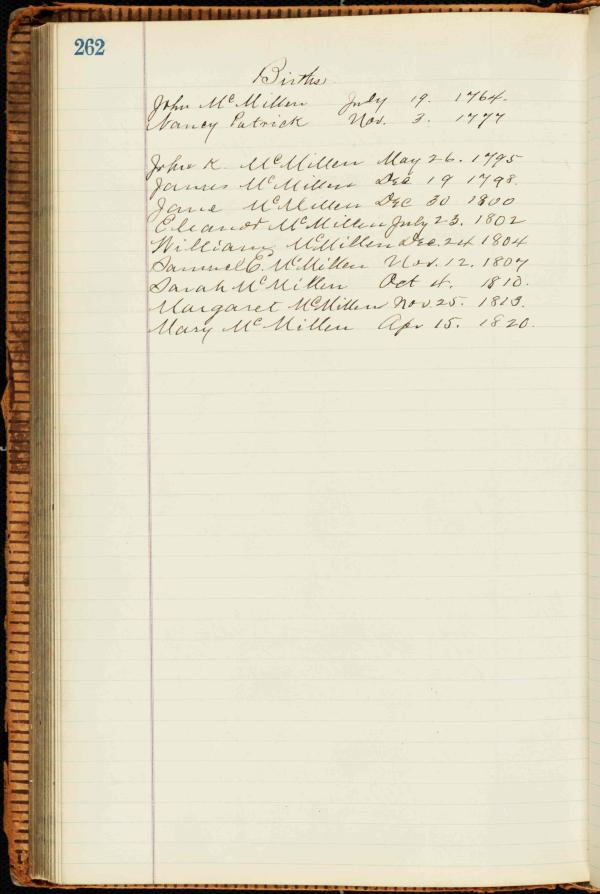 262
Births
John McMillen July 19. 1764.
Nancy Patrick Nov. 3. 1777
John K. McMillen May 26. 1795
James McMillen Dec 19 1798.
Jane McMillen Dec 30 1800
Eleanor McMillen July 23. 1802
William McMillen Dec. 24 1804
Samuel E. McMillen Nov. 12. 1807
Sarah McMillen Oct 4. 1810.
Margaret McMillen Nov 25. 1813.
Mary McMillen Apr 15. 1820.